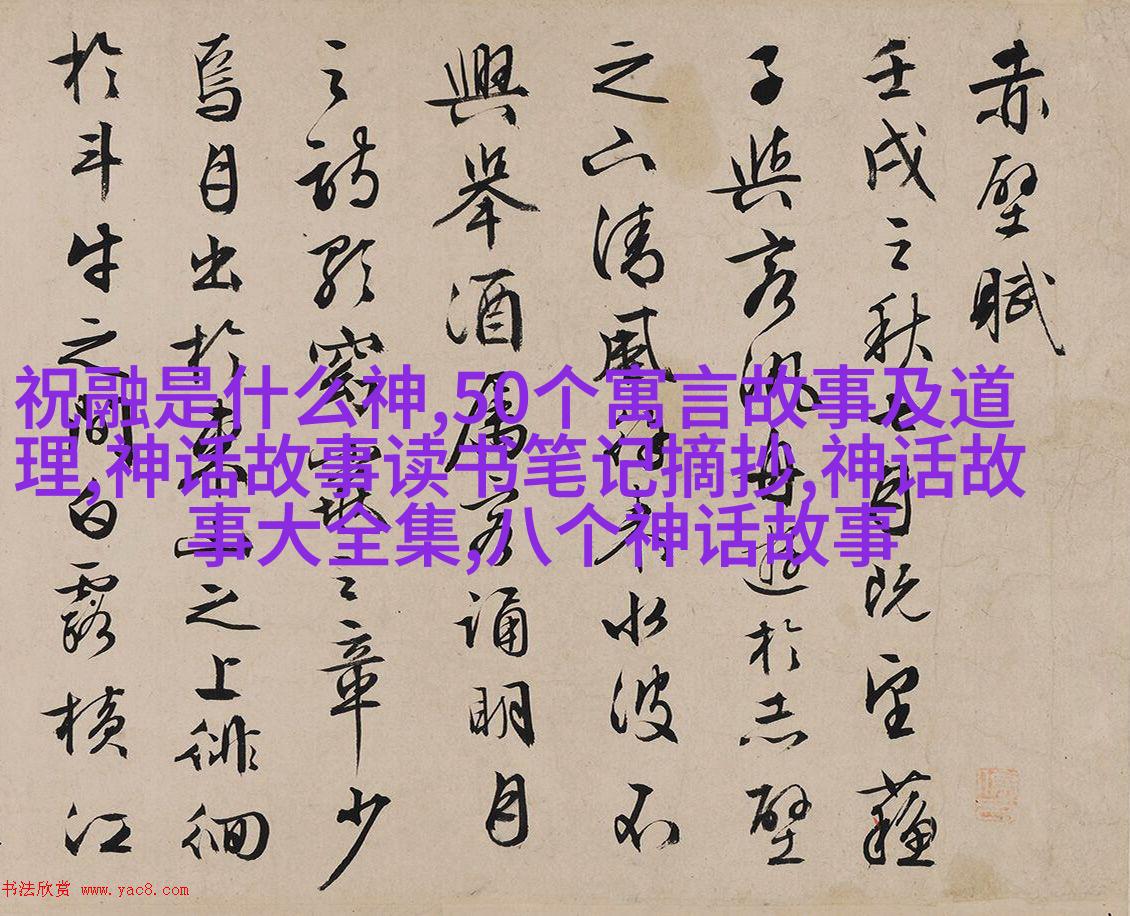 赤壁賦
壬戌之秋七月既望蘇
子與客泛舟遊於赤壁
之下清風徐來水波不
興舉酒屬客誦明月
之詩歌窈窕之章少
焉月出於東山之上徘徊
於斗牛之間白露橫江
祝融是什么神,50个寓言故事及道
理,神话故事读书笔记摘抄,神话故
事大全集,八个神话故事
书法欣赏 www.yac8.com